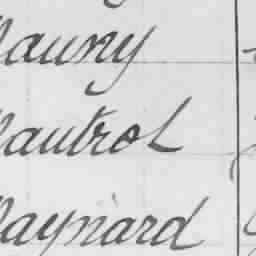 Mauny
Mautrol
Maynard